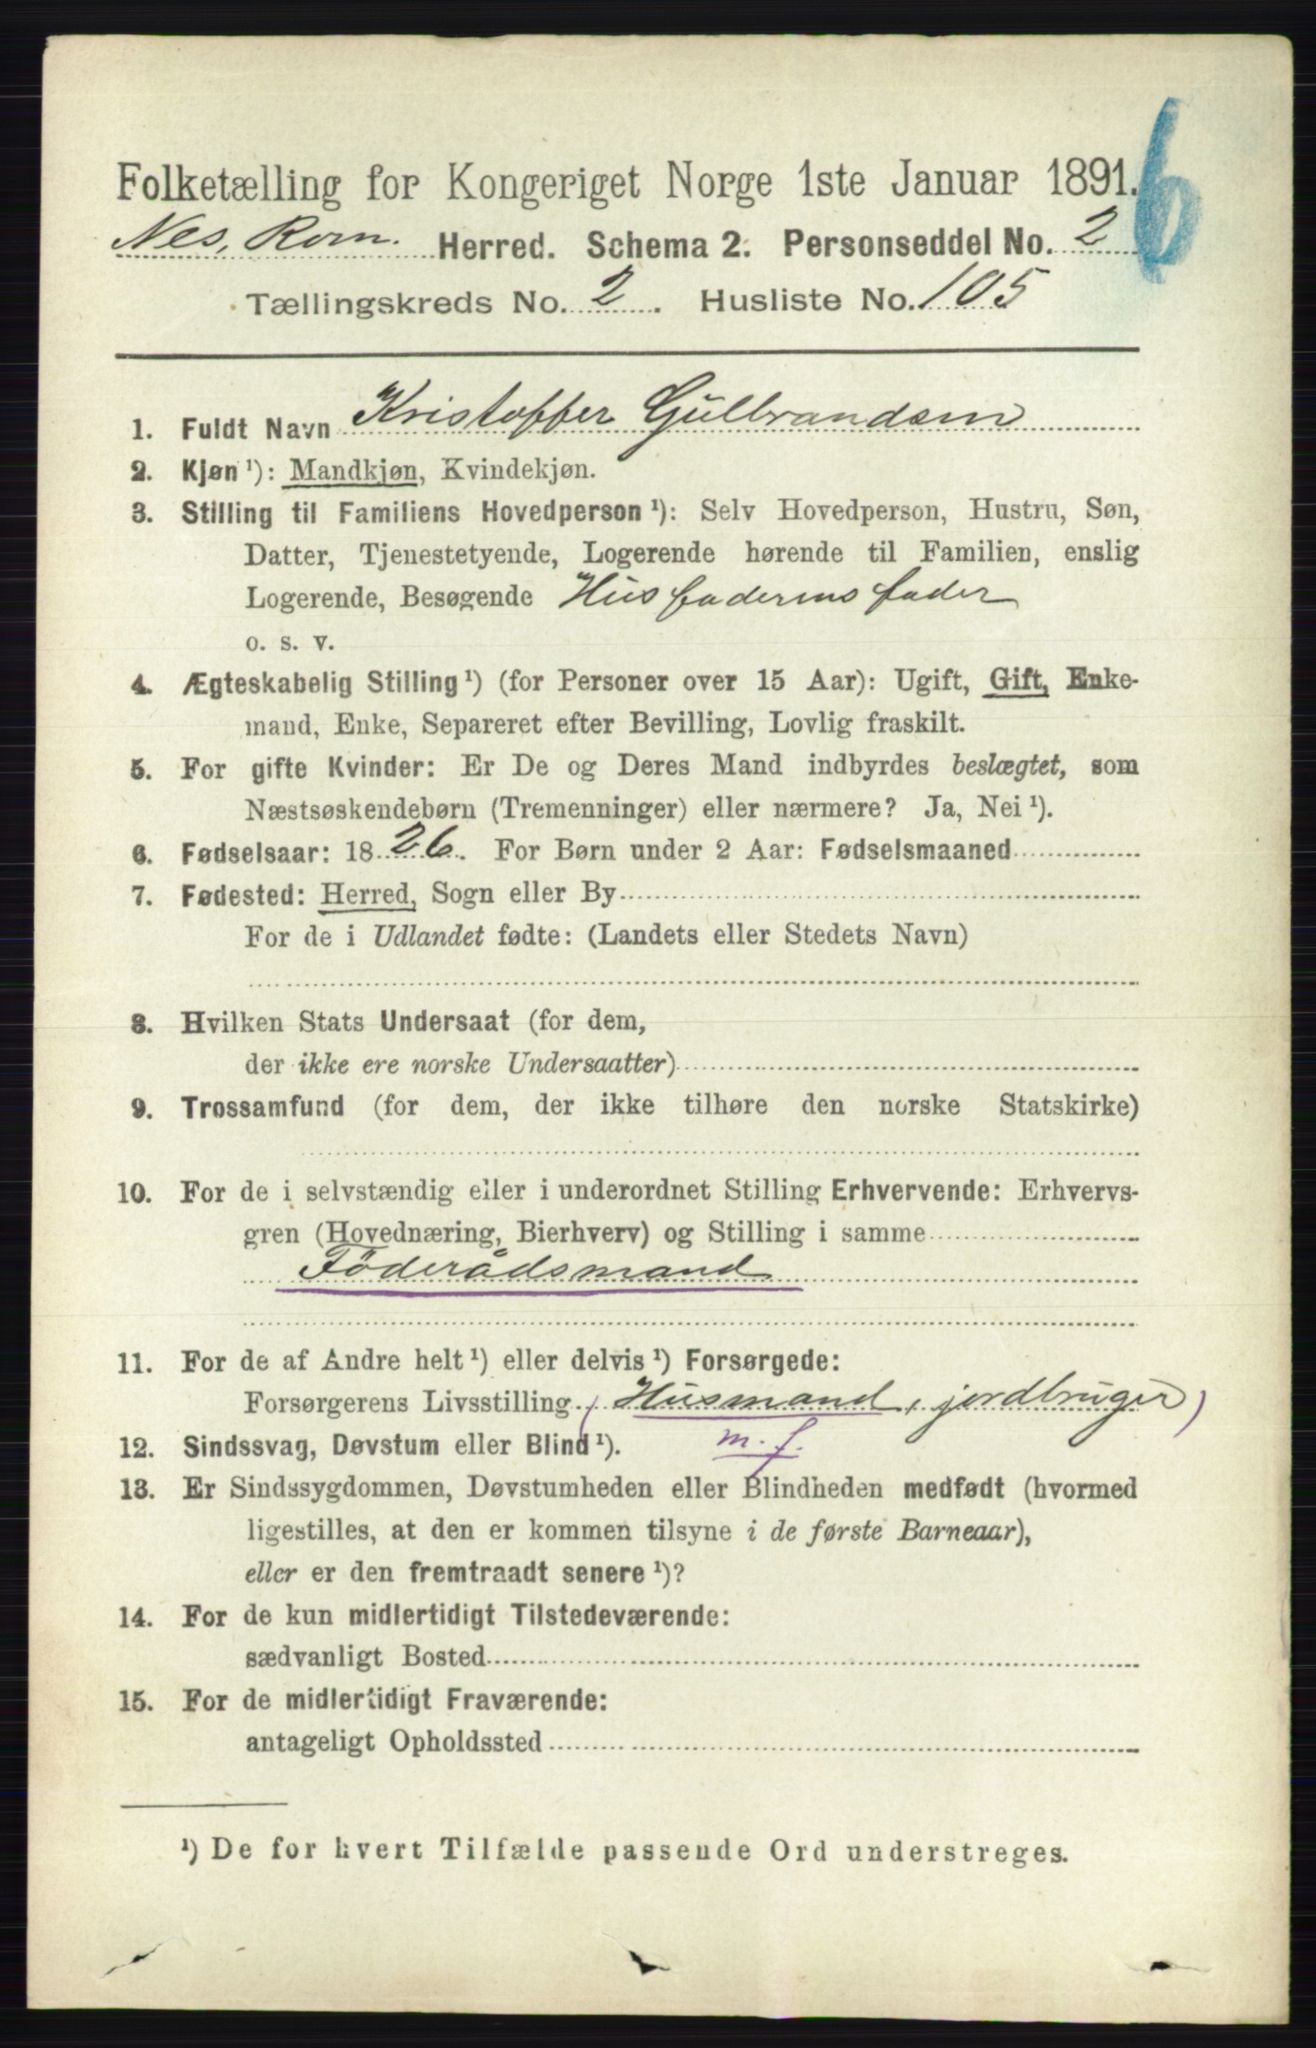 6
Folketælling for Kongeriget Norge 1ste Januar 1891.
Nes, Rom. Herred. Schema 2. Personseddel No. 2
Tællingskreds No. 2. Husliste No. 105
1. Fuldt Navn Kristoffer Gulbrandsen
2. Kjøn ¹): Mandkjøn, Kvindekjøn.
3. Stilling til Familiens Hovedperson ¹): Selv Hovedperson, Hustru, Søn,
Datter, Tjenestetyende, Logerende hørende til Familien, enslig
Logerende, Besøgende Husfaderens fader
o. s. v.
4. Ægteskabelig Stilling ¹) (for Personer over 15 Aar): Ugift, Gift, Enke-
mand, Enke, Separeret efter Bevilling, Lovlig fraskilt.
5. For gifte Kvinder: Er De og Deres Mand indbyrdes beslægtet, som
Næstsøskendebørn (Tremenninger) eller nærmere? Ja, Nei ¹).
6. Fødselsaar: 1826. For Børn under 2 Aar: Fødselsmaaned
7. Fødested: Herred, Sogn eller By
For de i Udlandet fødte: (Landets eller Stedets Navn)
8. Hvilken Stats Undersaat (for dem,
der ikke ere norske Undersaatter)
9. Trossamfund (for dem, der ikke tilhøre den norske Statskirke)
10. For de i selvstændig eller i underordnet Stilling Erhvervende: Erhvervs-
gren (Hovednæring, Bierhverv) og Stilling i samme
Föderådsmand
11. For de af Andre helt ¹) eller delvis ¹) Forsørgede:
Forsørgerens Livsstilling (Husmand, jordbruger)
12. Sindssvag, Døvstum eller Blind ¹). m. f.
13. Er Sindssygdommen, Døvstumheden eller Blindheden medfødt (hvormed
ligestilles, at den er kommen tilsyne i de første Barneaar),
eller er den fremtraadt senere ¹)?
14. For de kun midlertidigt Tilstedeværende:
sædvanligt Bosted
15. For de midlertidigt Fraværende:
antageligt Opholdssted
¹) De for hvert Tilfælde passende Ord understreges.